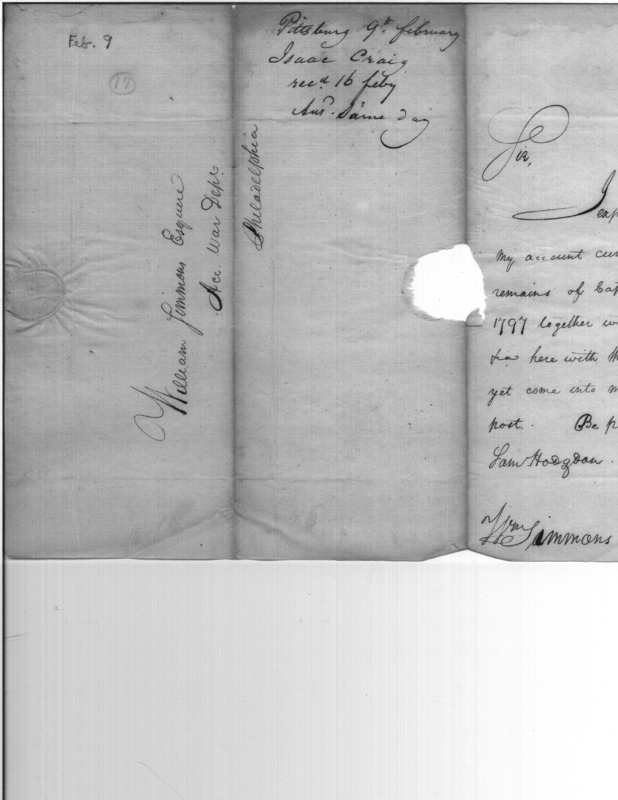 Feb. 9
17
William Simmons Esquire
Acc. War Dept.
Philadelphia
Pittsburg 9th february
Isaac Craig
recd. 16 feby
Ansr. Same day
Sir,
I
my account
remains of
1797 together
here with
yet come into
post. Be
Saml Hodgdon.
Wm Simmons